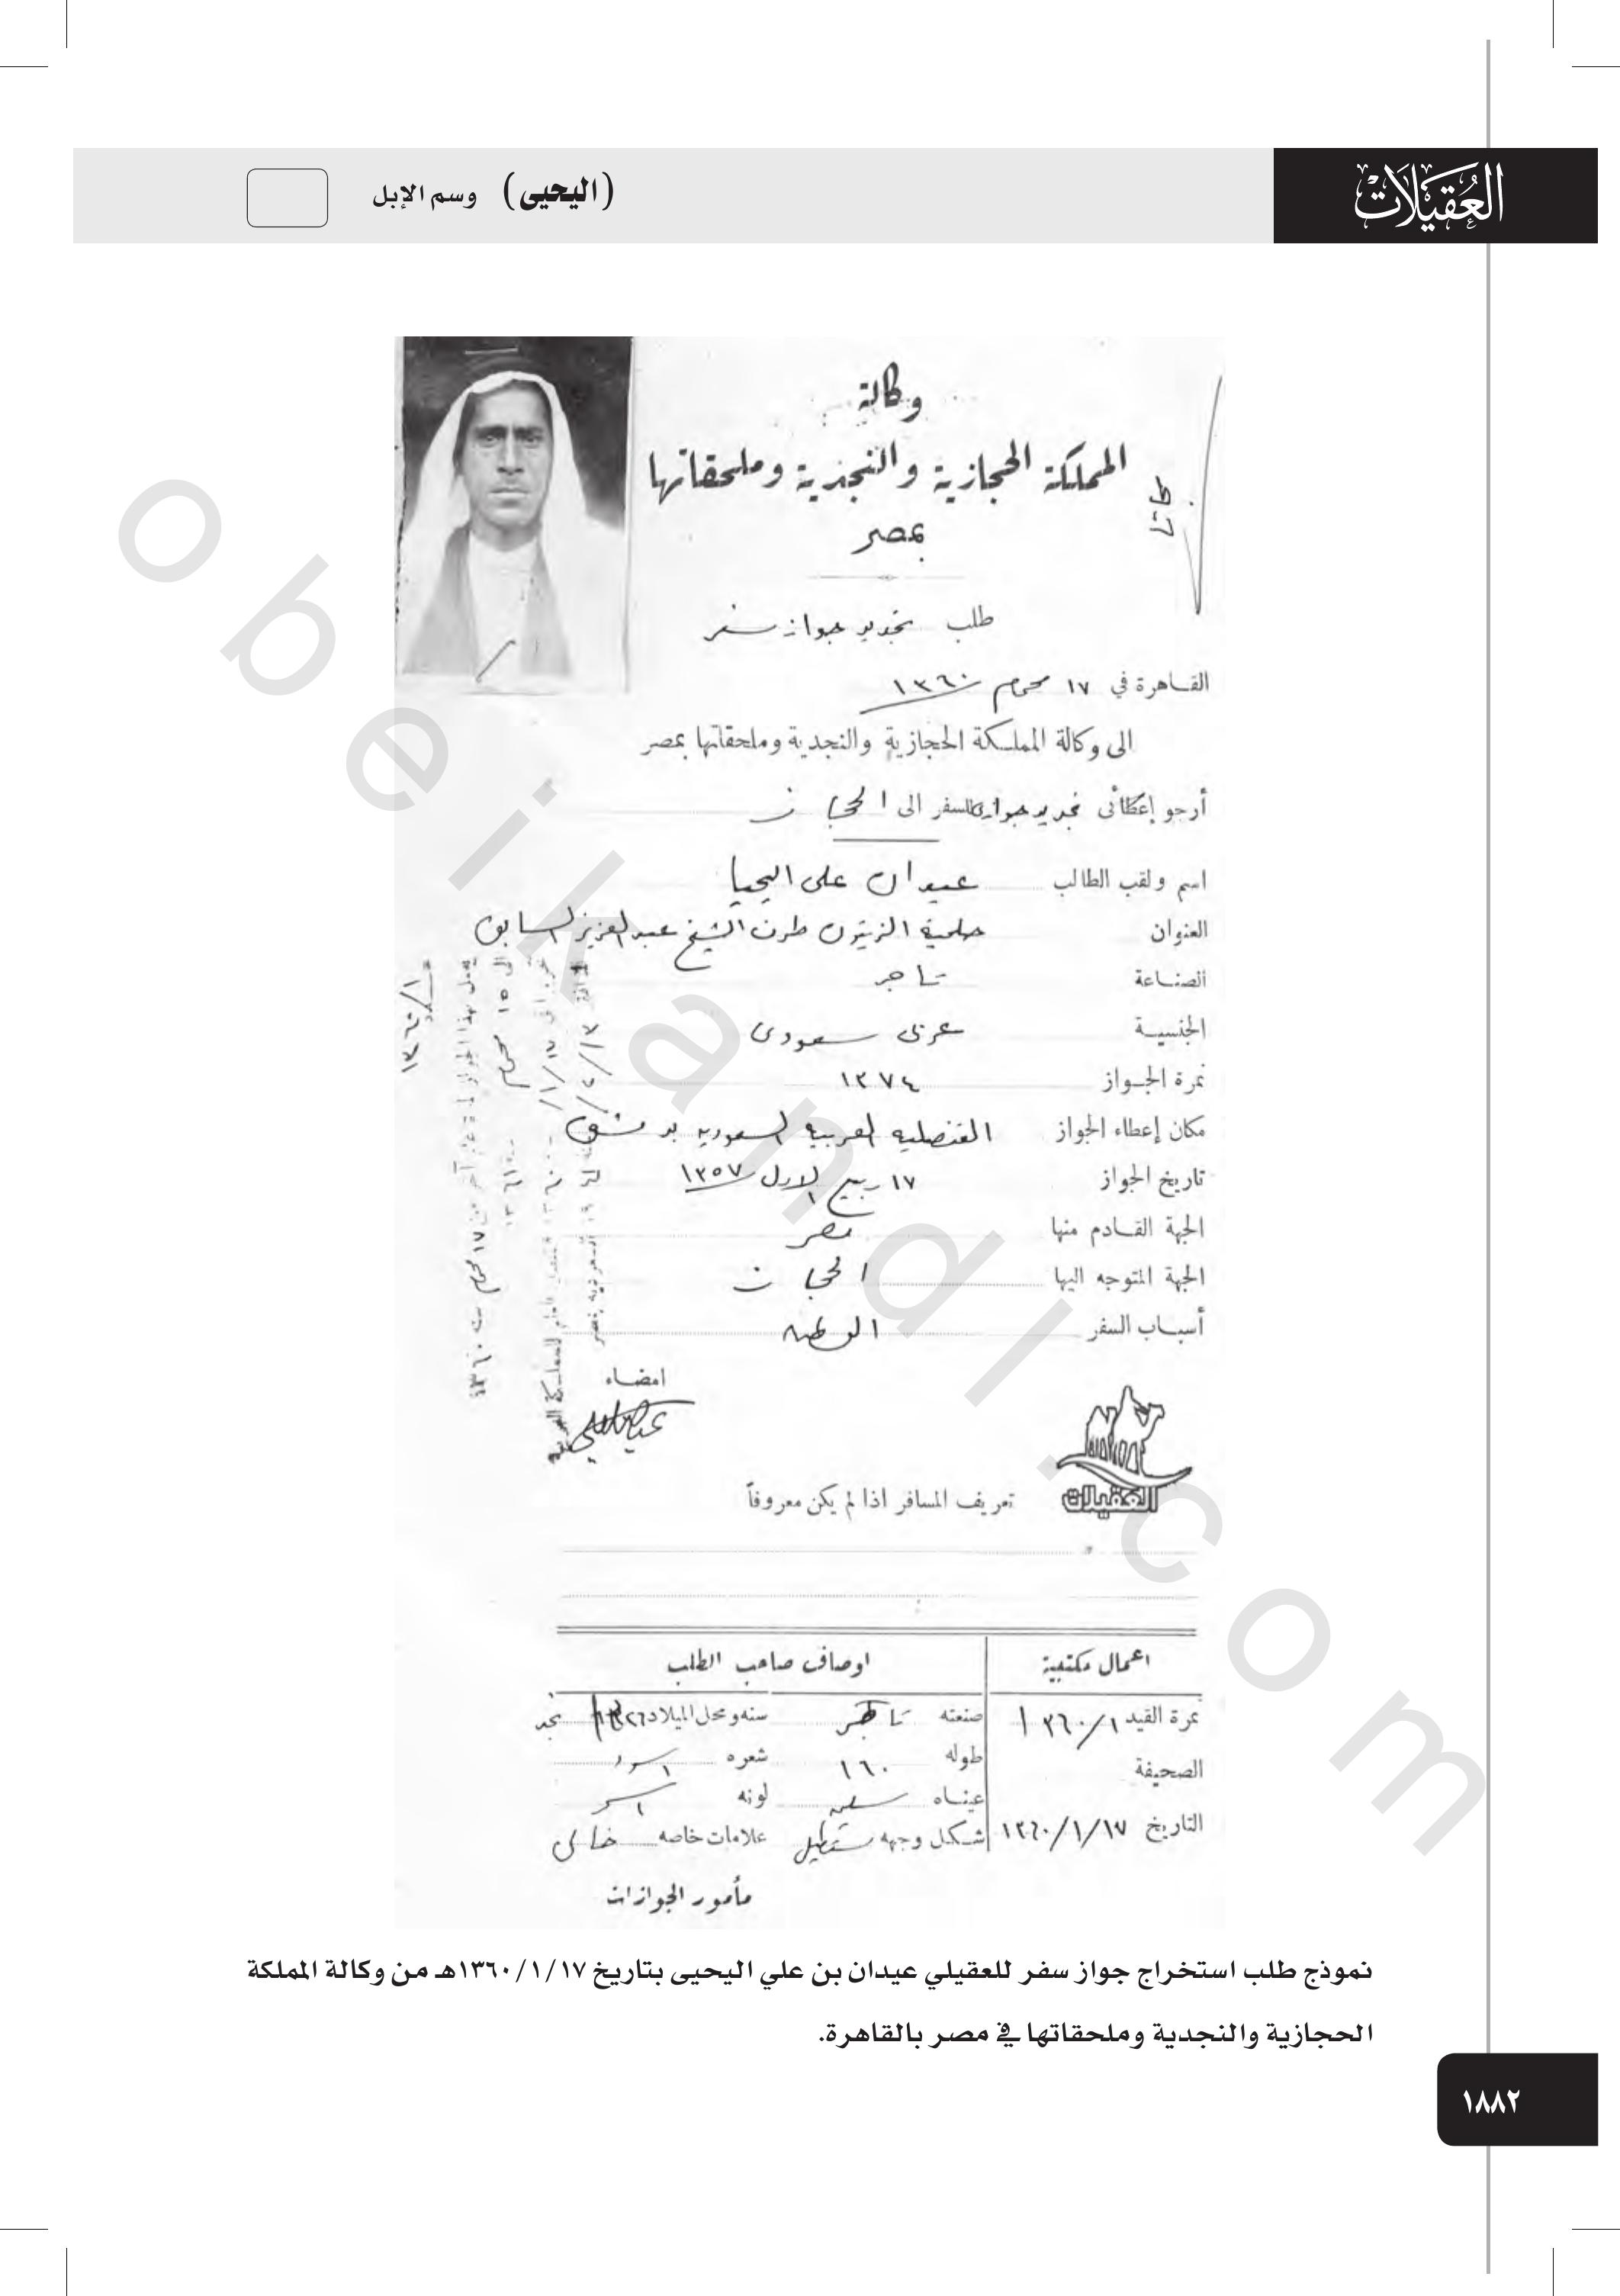 العُقيلات
(اليحيى) وسم الإبل
وكالة
المملكة الحجازية والنجدية وملحقاتها
بمصر
طلب تجديد جواز سفر
القاهرة في ١٧ محرم ١٣٦٠
الى وكالة المملكة الحجازية والنجدية وملحقاتها بمصر
أرجو إعطائى تجديد جواز للسفر الى الحجاز
اسم ولقب الطالب عيدان على اليحيا
العنوان حلمية الزيتون طرف الشيخ عبد العزيز السابق
الصناعة تاجر
الجنسية عربى سعودى
نمرة الجواز ١٢٧٤
مكان إعطاء الجواز القنصليه العربيه السعوديه بدمشق
تاريخ الجواز ١٧ ربيع الاول ١٣٥٧
الجهة القادم منها مصر
الجهة المتوجه اليها الحجاز
أسباب السفر
امضاء
العقيلات
تعريف المسافر اذا لم يكن معروفاً
اعمال مكتبية اوصاف صاحب الطلب
نمرة القيد ١٣٦٠/١ صنعته تاجر سنه ومحل الميلاد نجد
الصحيفة طوله ١٦٠ شعره اسود
عيناه لونه اسمر
التاريخ ١٣٦٠/١/١٧ شكل وجهه مستطيل علامات خاصه خالى
مأمور الجوازات
نموذج طلب استخراج جواز سفر للعقيلي عيدان بن علي اليحيى بتاريخ ١٧/ ١/ ١٣٦٠هـ من وكالة المملكة
الحجازية والنجدية وملحقاتها في مصر بالقاهرة.
١٨٨٢
obeikandl.com